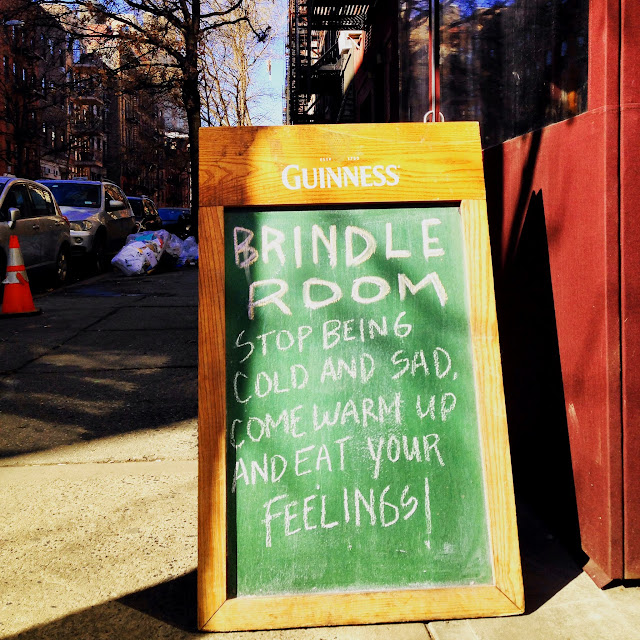 GUINNESS
BRINDLE
ROOM
STOP BEING
COLD AND SAD.
COME WARM UP
AND EAT YOUR
FEELINGS!